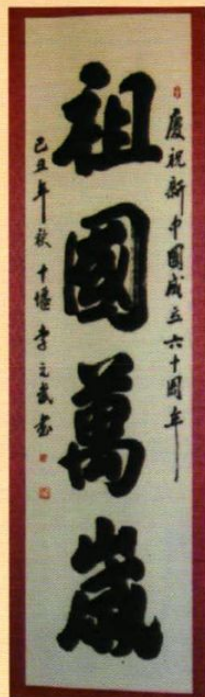 慶祝新中國成立六十周年
祖國萬歲
己丑年秋十堰李元武书